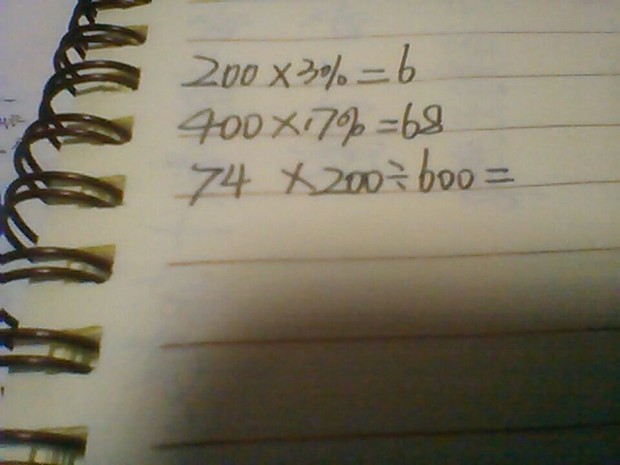 200×3%=6
400×17%=68
74 ×200÷600=